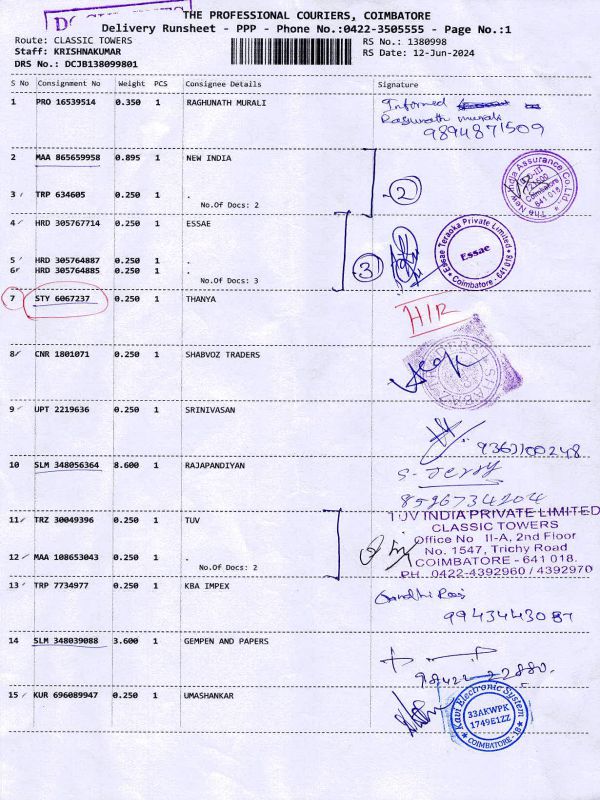 THE PROFESSIONAL COURIERS, COIMBATORE
Delivery Runsheet - PPP - Phone No.:0422-3505555 - Page No.:1
Route: CLASSIC TOWERS
Staff: KRISHNAKUMAR
DRS No.: DCJB138099801
RS No.: 1380998
RS Date: 12-Jun-2024
S No Consignment No Weight PCS Consignee Details Signature
1 PRO 16539514 0.350 1 RAGHUNATH MURALI
Informed
Raghunath murali
9894871509
2 MAA 865659958 0.895 1 NEW INDIA
3 TRP 634605 0.250 1 .
No.Of Docs: 2
2
The New India Assurance Co Ltd
Coimbatore
641 018
4 HRD 305767714 0.250 1 ESSAE
5 HRD 305764887 0.250 1 .
6 HRD 305764885 0.250 1 .
No.Of Docs: 3
3
Essae Teraoka Private Limited
Essae
Coimbatore - 641 018
7 STY 6067237 0.250 1 THANYA
H/R
8 CNR 1801071 0.250 1 SHABVOZ TRADERS
9 UPT 2219636 0.250 1 SRINIVASAN
10 SLM 348056364 8.600 1 RAJAPANDIYAN
S. Jerry
8526734204
11 TRZ 30049396 0.250 1 TUV
12 MAA 108653043 0.250 1 .
No.Of Docs: 2
TUV INDIA PRIVATE LIMITED
CLASSIC TOWERS
Office No II-A, 2nd Floor
No. 1547, Trichy Road
COIMBATORE - 641 018.
PH : 0422-4392960 / 4392970
13 TRP 7734977 0.250 1 KBA IMPEX
9943443087
14 SLM 348039088 3.600 1 GEMPEN AND PAPERS
98422-22880.
15 KUR 696089947 0.250 1 UMASHANKAR
Kavi Electronic System
33AKWPK
1749E1ZZ
COIMBATORE-18